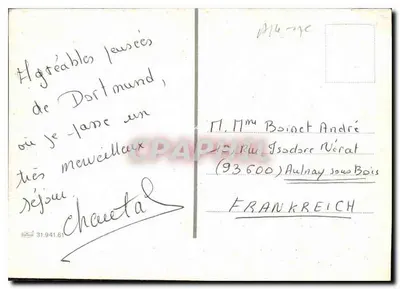 Agréables pensées
de Dortmund,
où je passe un
très merveilleux
séjour.
Chantal
M. Mme Boinet André
Rue Isodore Nérat
(93600) Aulnay sous Bois
FRANKREICH